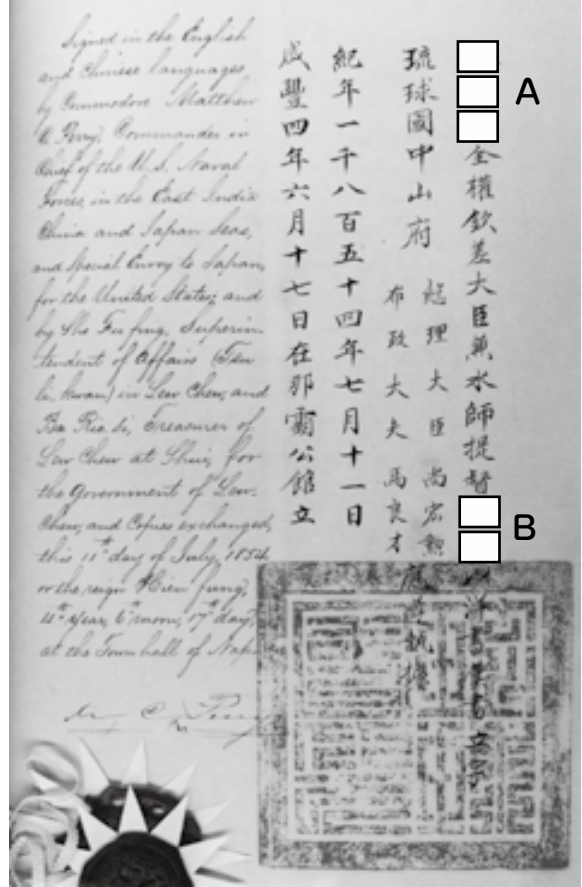 Signed in the English
and Chinese languages
by Commodore Matthew
C. Perry, Commander in
Chief of the U.S. Naval
Forces in the East India
China and Japan Seas,
and Special Envoy to Japan,
for the United States; and
by Sho Fu fing, Superin-
tendent of Affairs (Tsu
li-kwan) in Lew Chew, and
Ba Rio-si, Treasurer of
Lew Chew at Shui, for
the Government of Lew-
Chew, and Copies exchanged,
this 11th day of July, 1854,
or the reign Hien fung,
4th year, 6th moon, 17th day,
at the Town hall of
A
全權欽差大臣兼水師提督
B
琉球國中山府
總理大臣尚宏勳
布政大夫馬良才
應遵執據
紀年一千八百五十四年七月十一日
咸豐四年六月十七日在那霸公館立